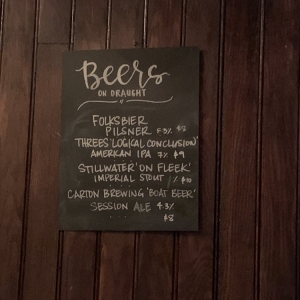 Beers
ON DRAUGHT
FOLKSBIER
PILSNER 5.3% $8
THREES 'LOGICAL CONCLUSION'
AMERICAN IPA 7% $9
STILLWATER 'ON FLEEK'
IMPERIAL STOUT % $10
CARTON BREWING 'BOAT BEER'
SESSION ALE 4.3%
$8